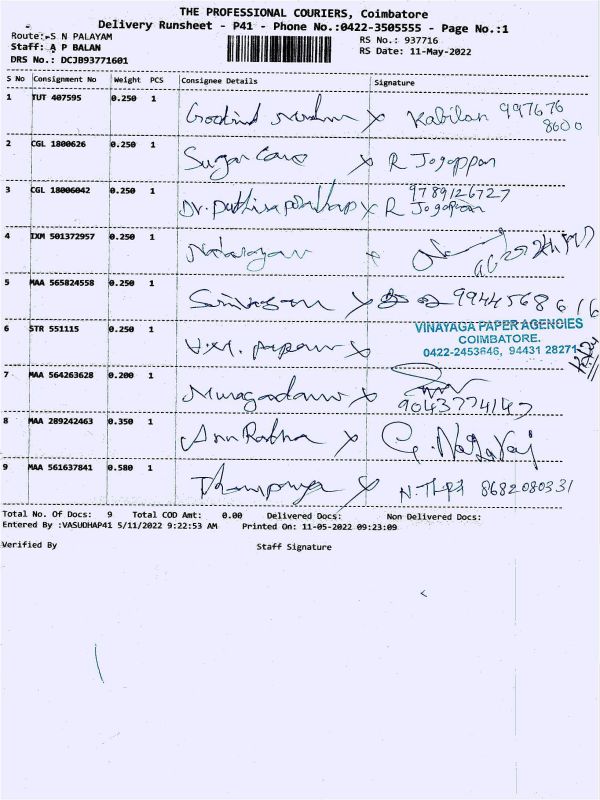 THE PROFESSIONAL COURIERS, Coimbatore
Delivery Runsheet - P41 - Phone No.:0422-3505555 - Page No.:1
Route: S N PALAYAM
RS No.: 937716
Staff: A P BALAN
RS Date: 11-May-2022
DRS No.: DCJB93771601
S No Consignment No Weight PCS Consignee Details Signature
1 TUT 407595 0.250 1 x Kabilan 997676
8600
2 CGL 1800626 0.250 1 Sugar Cane x R Jogappan
9789126727
3 CGL 18006042 0.250 1 Dr. x R Jogappan
4 IXM 501372957 0.250 1 Natarajan x
5 MAA 565824558 0.250 1 Srinivasan x 9944568616
6 STR 551115 0.250 1 V.M. papers x
VINAYAGA PAPER AGENCIES
COIMBATORE.
0422-2453646, 94431 28271
7 MAA 564263628 0.200 1 x
9043774147
8 MAA 289242463 0.350 1 Anu Radha x G. Nagaraj
9 MAA 561637841 0.580 1 x 8682080331
Total No. Of Docs: 9 Total COD Amt: 0.00 Delivered Docs: Non Delivered Docs:
Entered By :VASUDHAP41 5/11/2022 9:22:53 AM Printed On: 11-05-2022 09:23:09
Verified By Staff Signature